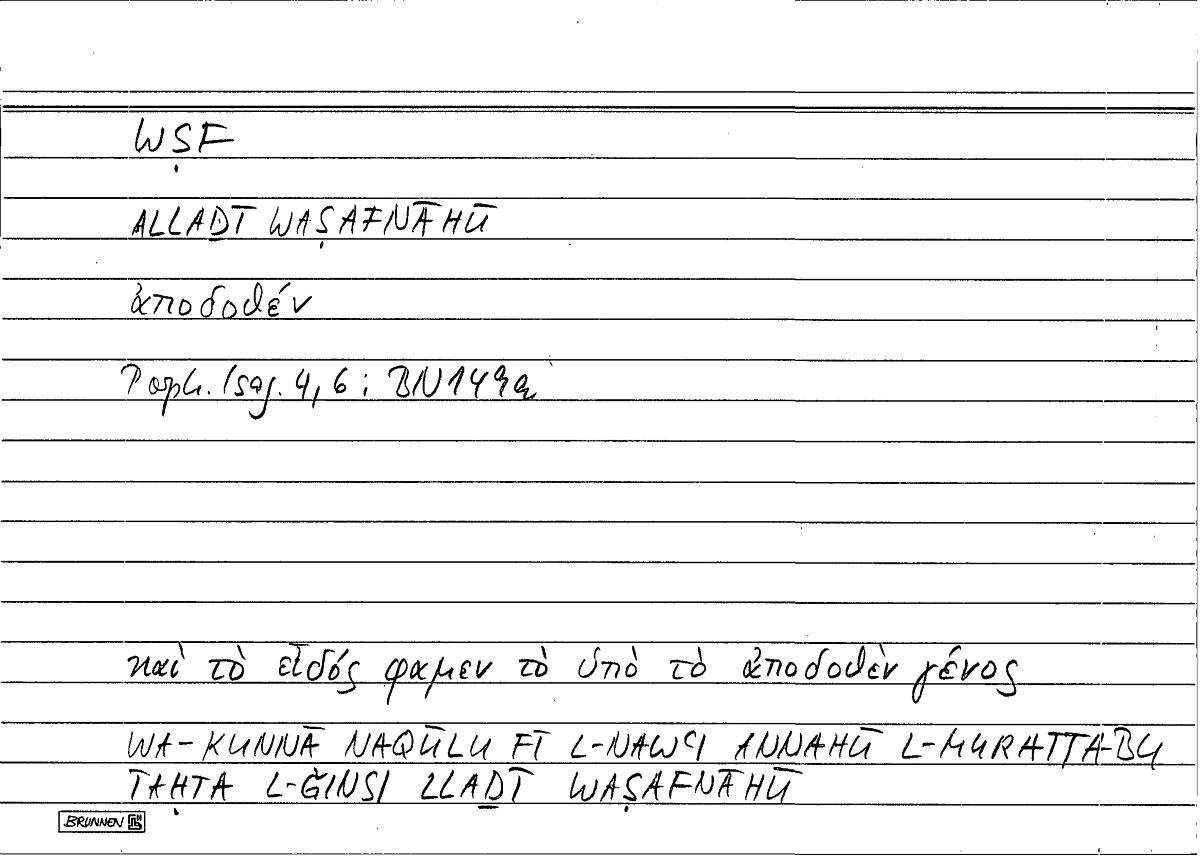 WṢF
ALLAḎĪ WAṢAFNĀHŪ
ἀποδοθέν
Porph. Isag. 4,6; BN149a
καὶ τὸ εἶδός φαμεν τὸ ὑπὸ τὸ ἀποδοθὲν γένος
WA-KUNNĀ NAQŪLU FĪ L-NAWʿI ANNAHŪ L-MURATTABU
TAḤTA L-ǦINSI LLAḎĪ WAṢAFNĀHŪ
BRUNNEN